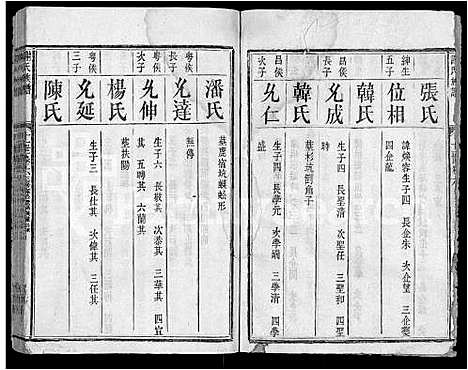 張氏
紳生
五子
位相
諱煥蓉生子四 長企朱 次企望 三企夔
四企龍
韓氏
昌侯
長子
允成
生子四 長聖清 次聖任 三聖和 四聖
時
韓氏
葬杉坑劉角子
昌侯
次子
允仁
生子四 長學元 次學綱 三學清 四學
盛
潘氏
墓鹿宿坑蜈蚣形
粵侯
長子
允達
無傳
粵侯
次子
允伸
生子六 長椒其 次泰其 三華其 四宜
其 五聘其 六蘭其
楊氏
葬扶陽
粵侯
三子
允延
生子三 長達其 次偉其 三任其
陳氏